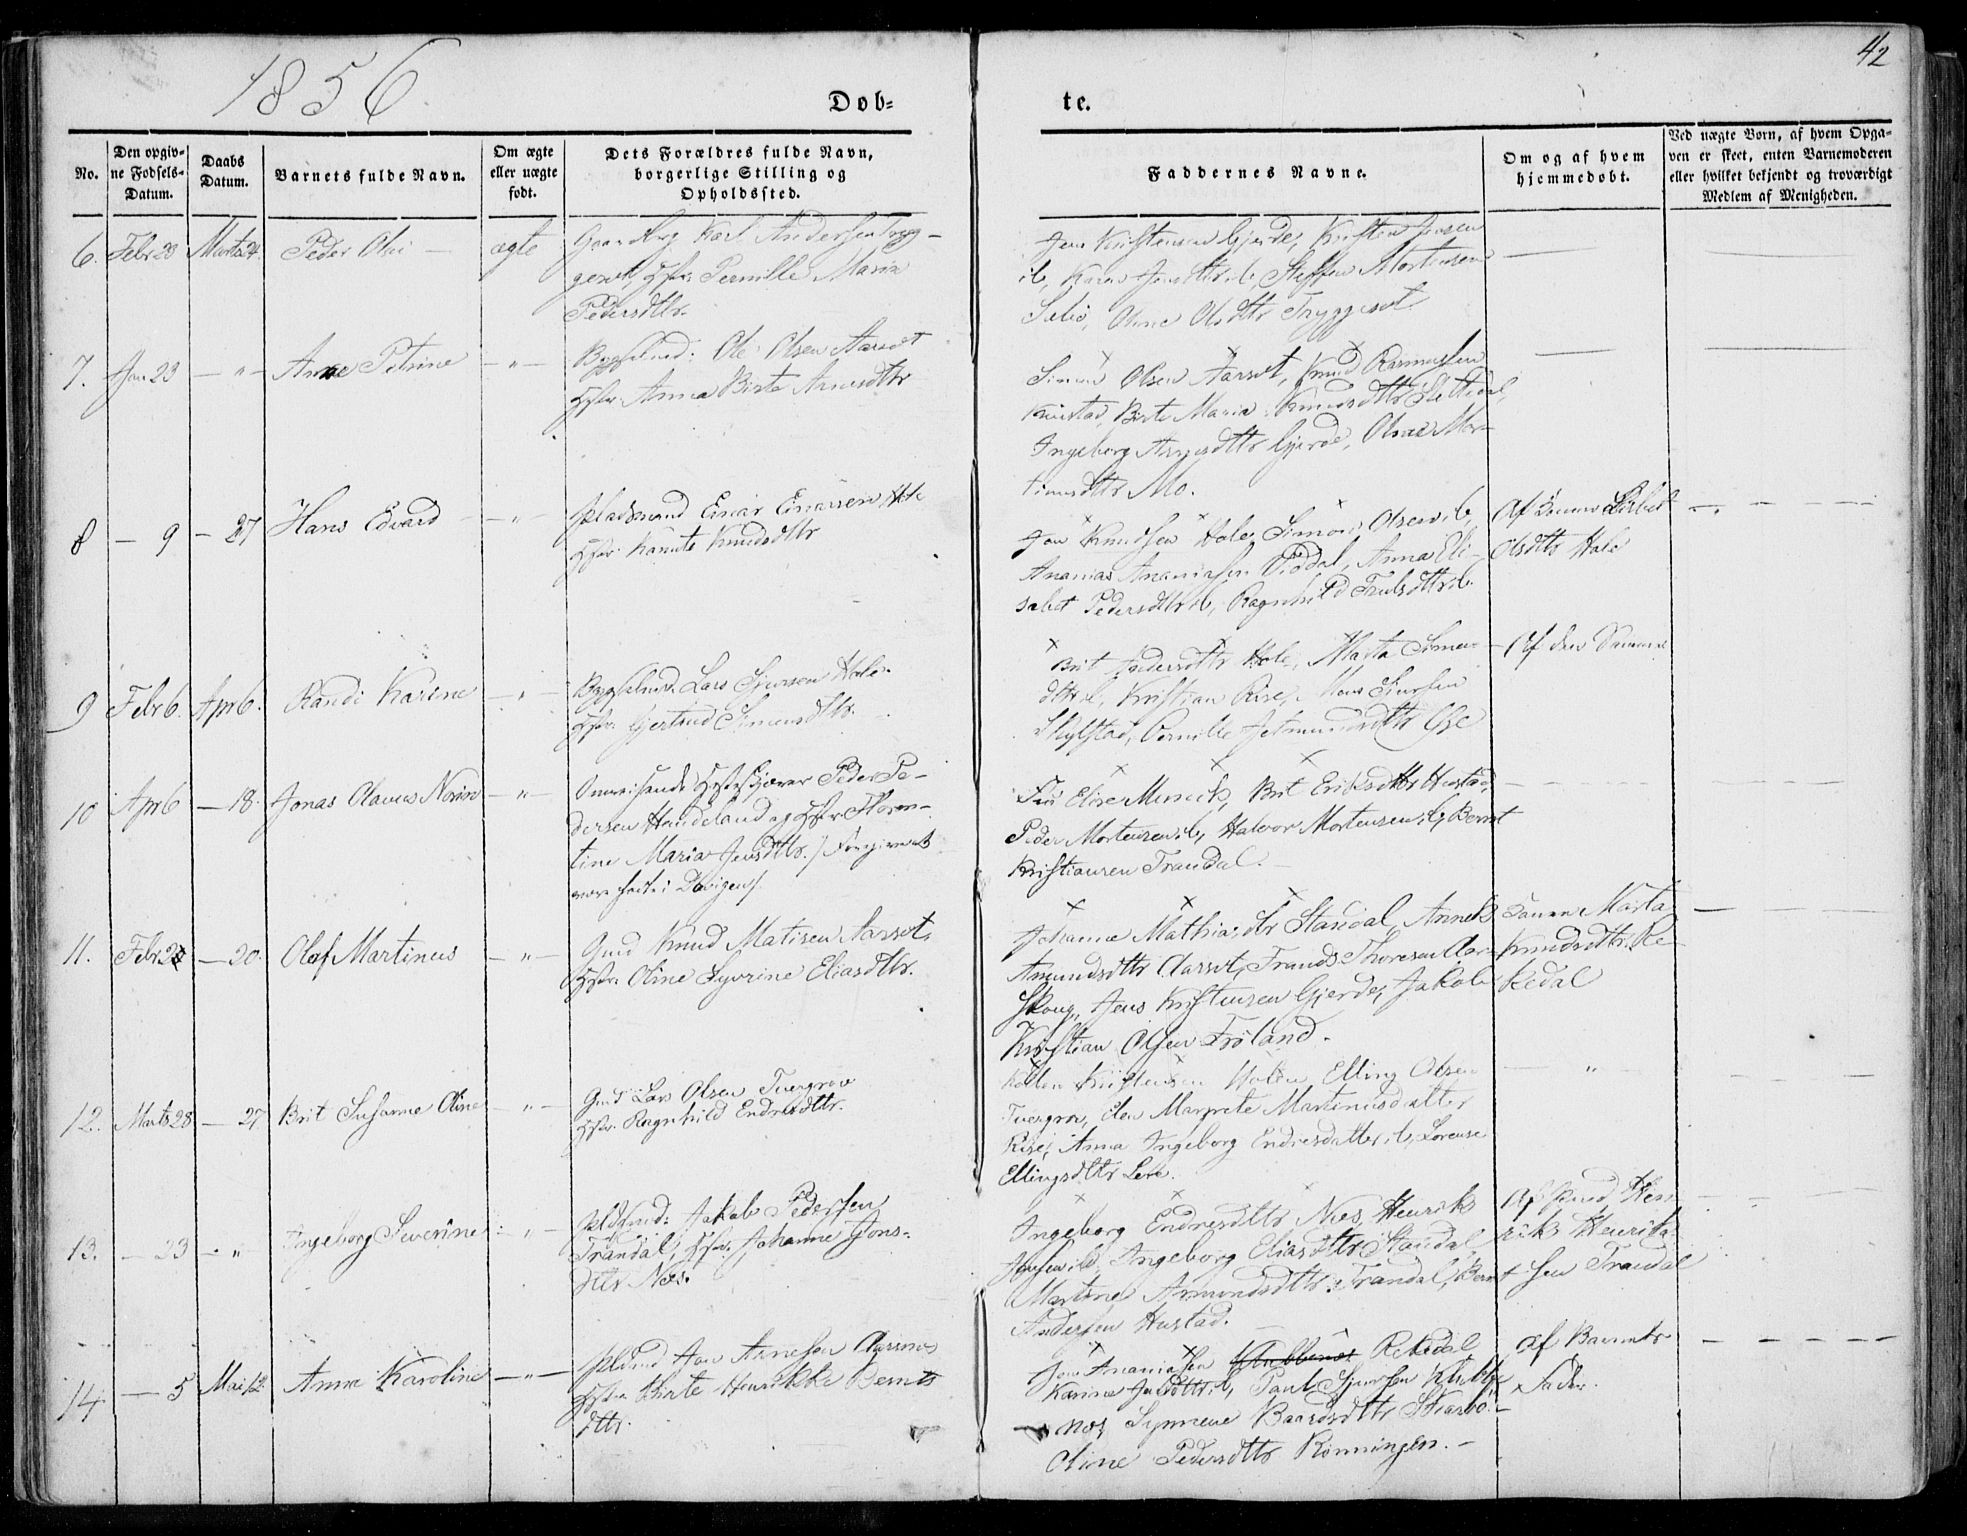 1856
42
Døb=
te.
No.
Den opgiv=
ne Fødsels=
Datum.
Daabs
Datum.
Barnets fulde Navn.
Om ægte
eller uægte
født.
Dets Forældres fulde Navn,
borgerlige Stilling og
Opholdssted.
Faddernes Navne.
Om og af hvem
hjemmedøbt.
Ved uægte Børn, af hvem Opga=
ven er skeet, enten Barnemoderen
eller hvilket bekjendt og troværdigt
Medlem af Menigheden.
6. Febr 23 Marts 24. Peder Olai — ægte
Karl Andersen Tryg-
gesæt, Hstr. Pernille Maria
Pedersdtr.
Jens Kristensen Gjerde, Kristen Jensen
ib, Karen Jensdtr ib, Steffen Mortensen
Sæbø, Oline Olsdtr Tryggesæt.
7. Jan 23 — " — Anne Petrine — " —
Bygselmd: Ole Olsen Aarsæt
Hstr. Anna Birte Arnesdtr
Simon Olsen Aarsæt, Knud Rasmussen
Birte Maria Knudsdtr
Ingeborg Arnesdtr Gjerde, Mor-
tinusdtr Mo.
8 — 9 — 27 Hans Edvard — " —
Pladsmand Einar Einarsen Hole
Hstr. Knudsdtr
Jon Knudsen Hole, Simon Olsen ib,
Ananias Ananiasen Anna Eli-
sabet Pedersdtr ib, Ragnhild ib.
Af Konen Lisbet
Olsdtr Hole
9 Febr 6. Apr 6. Randi Karine — " —
Bygselmd. Lars Sjursen Hole.
Hstr. Gjertrud Simonsdtr.
Brit Pedersdtr Hole, Marta Simon-
dtr ib, Kristian Rise, Mons Sjursen
Skylstad, Pernille Øye
Af den Samme
10 Apr 6 — 18. Jonas Olavus Norin — " —
Omreisende Peder Pe-
dersen Haudeland og Hstr. Floren-
tine Maria Jensdtr.
Elise Munck, Brit Eriksdtr Hustad,
Peder Mortensen ib, Halvor Mortensen ib, Bernt
Kristiansen Trandal.
11. Febr — 20. Olaf Martinus — " —
Gmd Knud Matisen Aarsæt,
Hstr. Oline Syvrine Eliasdtr.
Johanne Mathiasdtr Standal, Anne
Amundsdtr Aarsæt, Trands Thoresen Aar-
skoug, Jens Kristensen Gjerde, Jakob
Kristian Olsen Frøland.
Konen Marta
Knudsdtr Re-
kedal
12. Marts 28 — 27 Brit Susanne Oline — " —
Gmd Lars Olsen Tvergrov
Hstr. Ragnhild Endresdtr.
Kristensen Elling Olsen
Tvergrov, Elen Margrete Martinusdatter
Rise, Anna Ingeborg Endresdatter ib, Lorense
Ellingsdtr Leve.
— " —
13. — 23 — " Ingeborg Severine — " —
Pldsmd: Jakob Pedersen
Trandal, Hstr. Johanne Jons-
dtr Nes.
Ingeborg Endresdtr Nes, Henrik
ib, Ingeborg Eliasdtr Standal,
Martine Amundsdtr Trandal, Bernt
Andersen Hustad.
Af Gmd Hen-
rik Henrik-
sen Trandal
14 — 5 Mai 12. Anne Karoline — " —
Jon Arnesen
Hstr. Birte Henrikke Bernts
dtr.
Jon Ananiasen Rekedal,
Karine ib, Paul Sjursen Klubbe-
nes, Synneve Baardsdtr Skarbø.
Oline Pedersdtr Rønningen. —
Af Barnets
Fader.